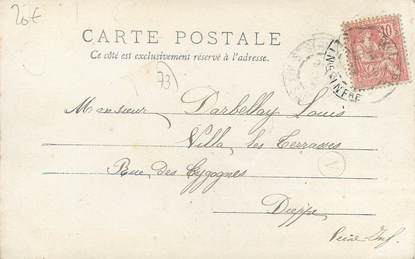 20€
CARTE POSTALE
Ce côté est exclusivement réservé à l'adresse.
10
73
Monsieur Darbellay Louis
Villa les Terrasses
Rue des Cygognes
Dieppe
Seine Inf.